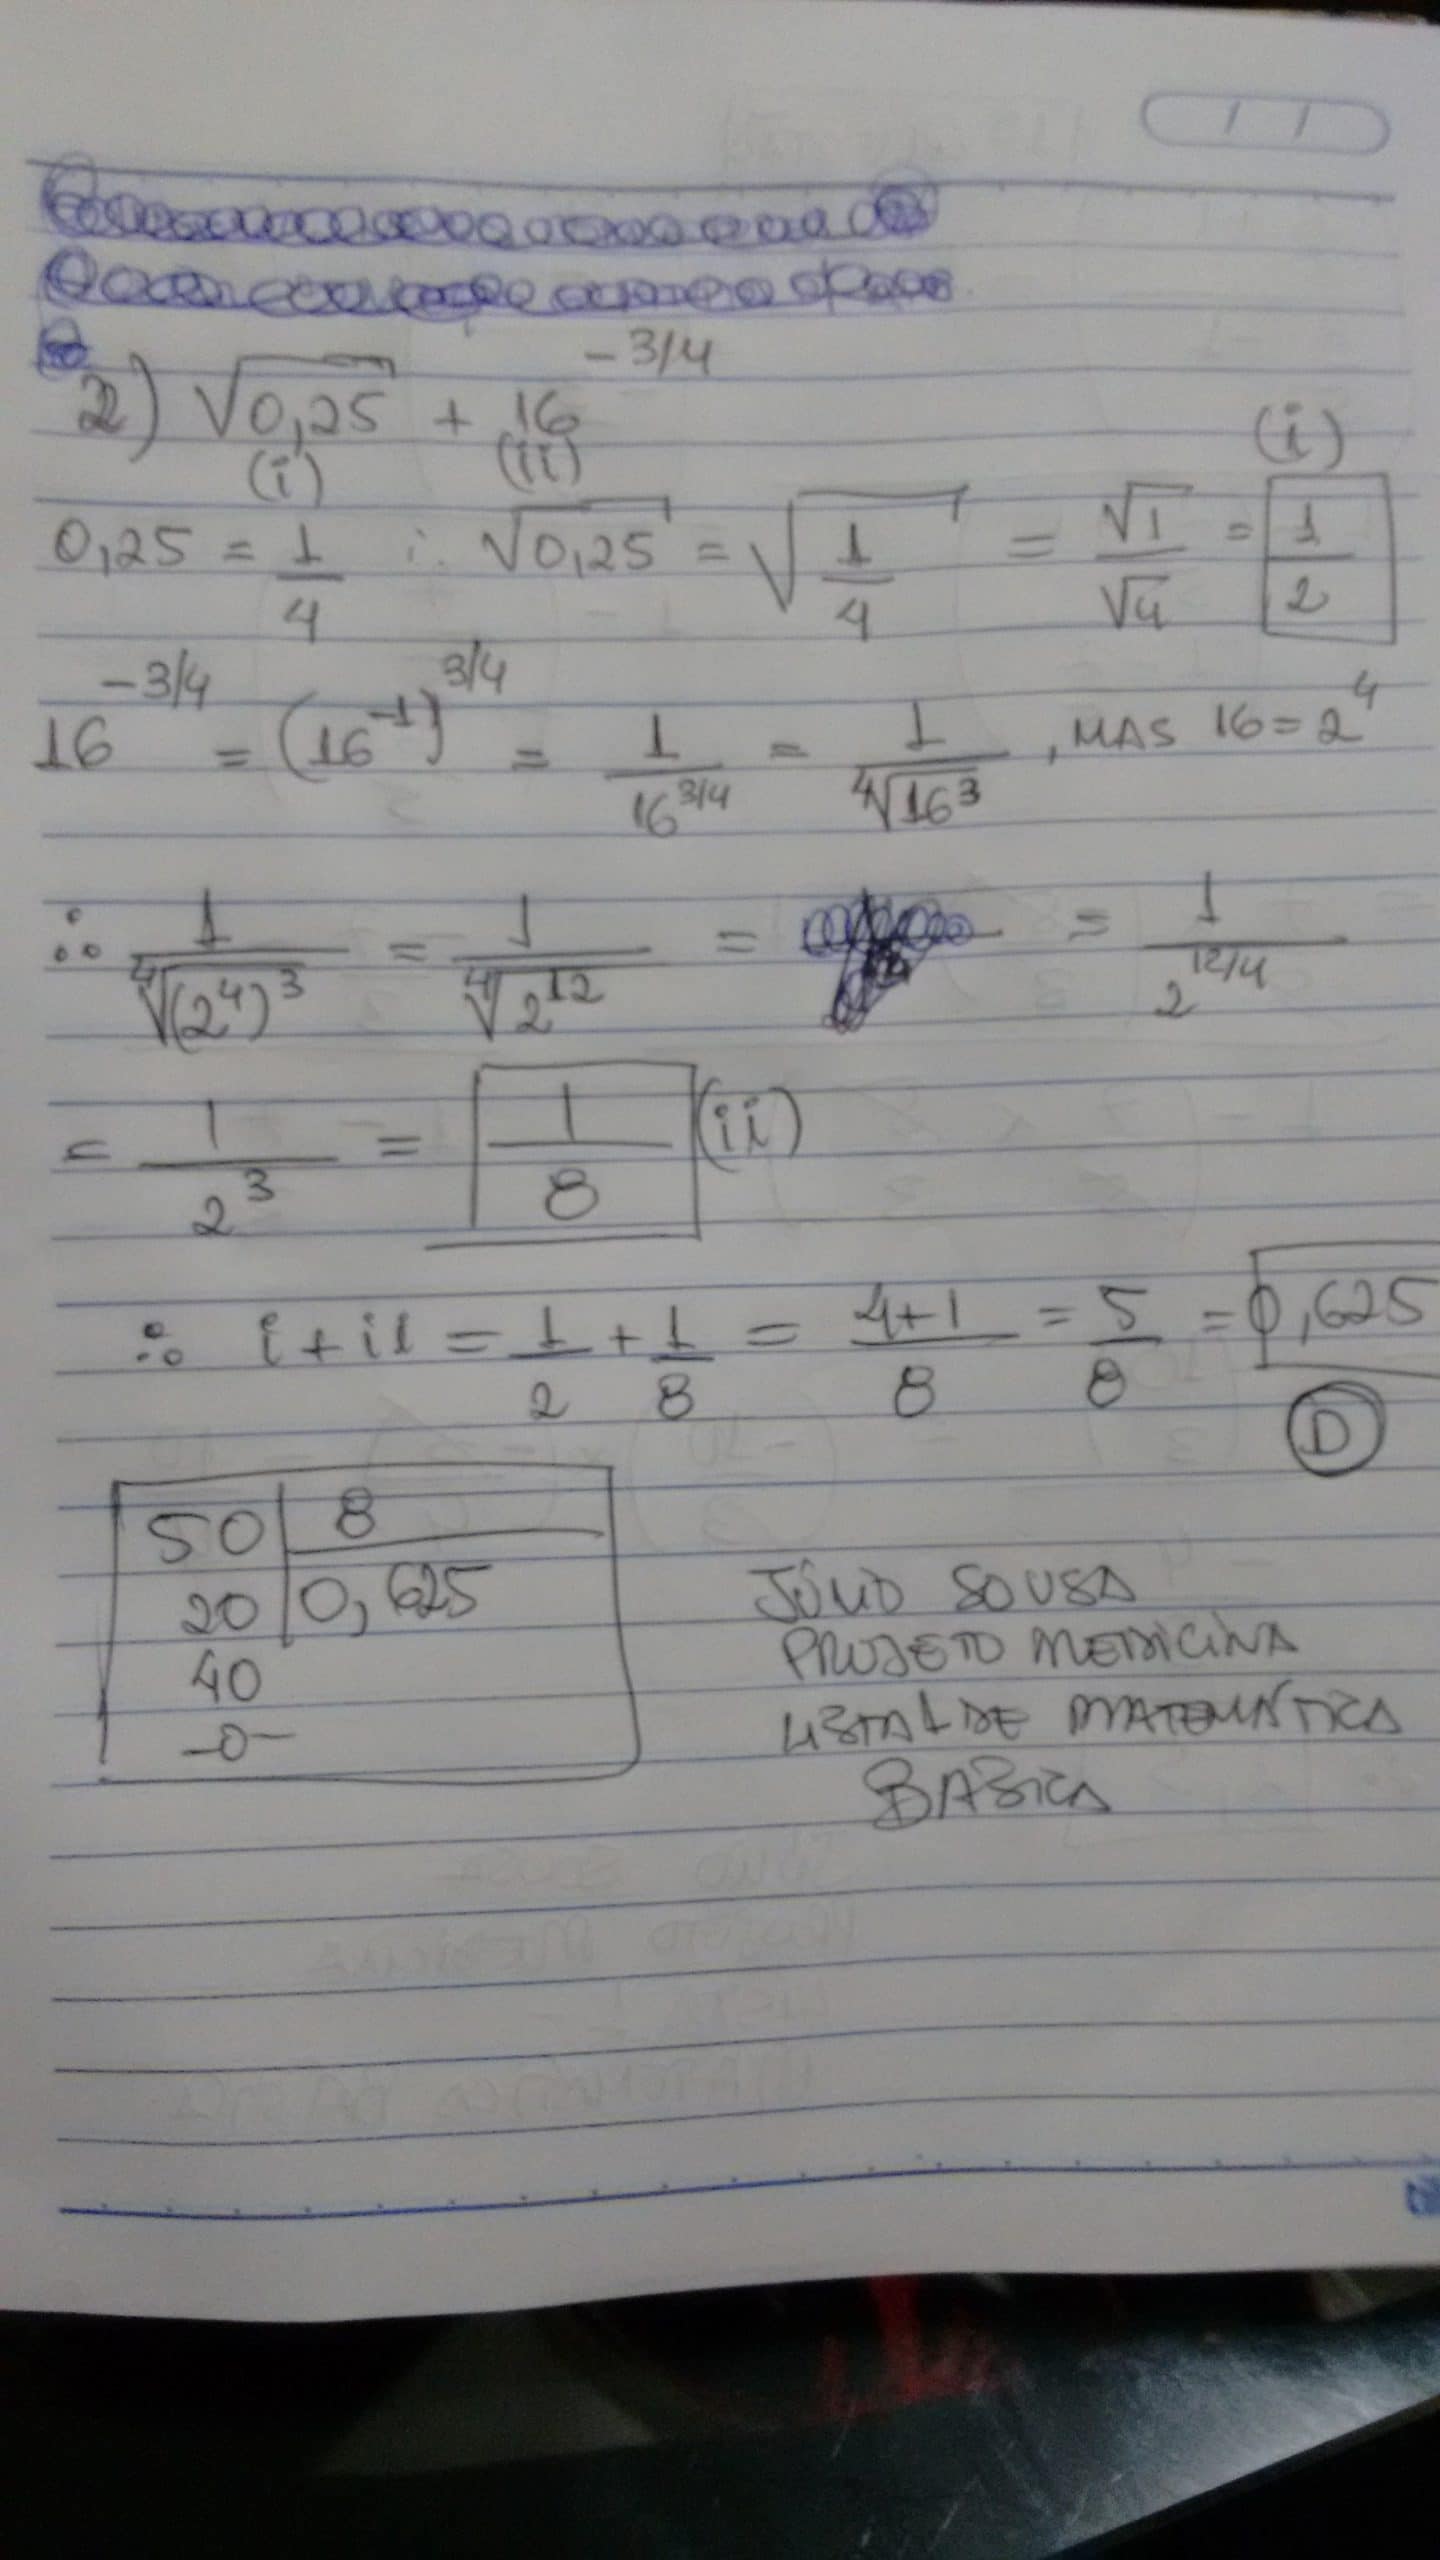 2) √0,25 + 16^(-3/4)
(i) (ii)
(i)
0,25 = 1/4 ∴ √0,25 = √(1/4) = √1/√4 = 1/2
16^(-3/4) = (16^(-1))^(3/4) = 1/16^(3/4) = 1/⁴√16³ , MAS 16 = 2⁴
∴ 1/⁴√(2⁴)³ = 1/⁴√2¹² = = 1/2^(12/4)
= 1/2³ = 1/8 (ii)
∴ i + ii = 1/2 + 1/8 = (4+1)/8 = 5/8 = 0,625
D
50 | 8
20 | 0,625
40
-0-
JÚLIO SOUSA
PROJETO MEDICINA
LISTA 1 DE MATEMÁTICA
BÁSICA